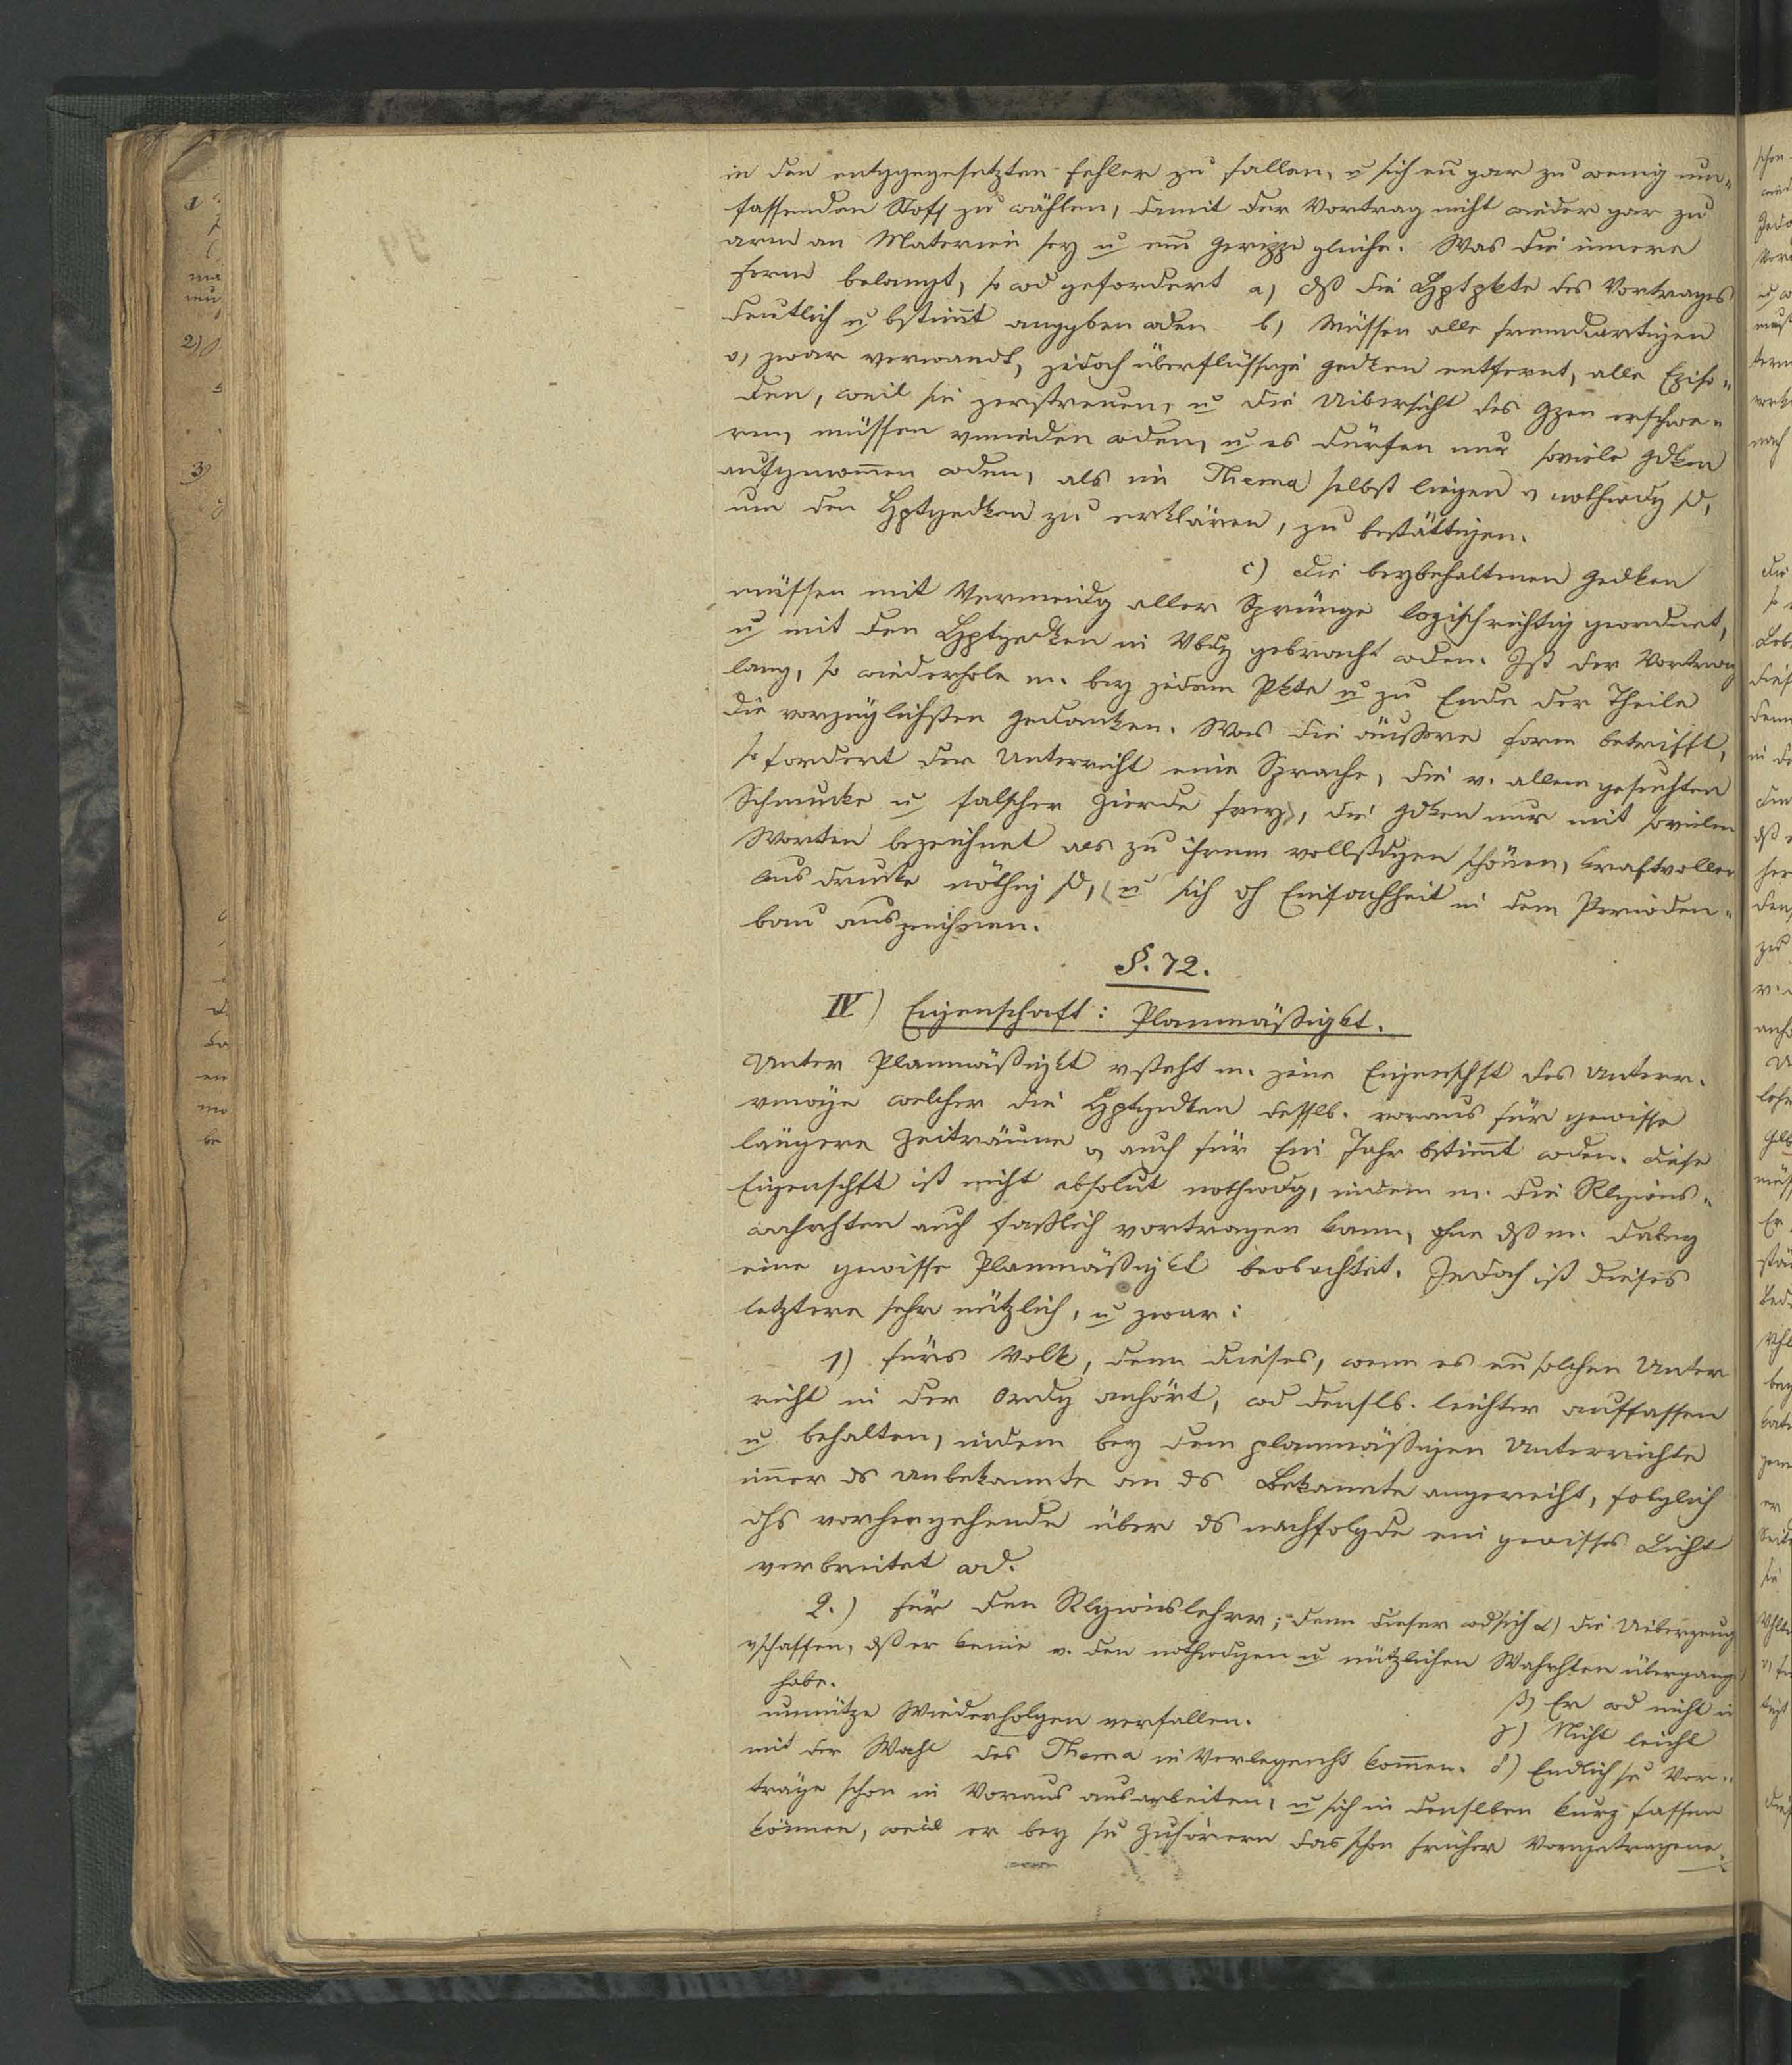 in den entggengesetzten Fehler zu fallen, u sich eñ gar zu wenig um=
fassenden Stoff zu wählen, damit der Vortrag nicht wieder gar zu
arm an Materien sey u eiñ Gerippe gleiche. Was die innere
Form belangt, so wd gefordert a) dß die Hptpkte des Vortrages
deutlich u bstimt anggben wden b) Müssen alle fremdartigen
o, zwar verwandt, jedoch überflüssige Gedken entfernt, alle Episo=
den, weil sie zerstreuen, u die Uibersicht des Gzen erschwe=
ren, müssen vmeiden wden, u es dürfen nur soviele Gdken
aufgenomen wden, als im Thema selbst liegen u nothwdg sd,
um den Hptgedken zu erklären, zu bestättigen.
c) die beybehaltenen Gedken
müssen mit Vermeidg aller Sprünge logischrichtig geordnet,
u mit den Hptgedken in Vbdg gebracht wden. Ist der Vortrag
lang, so wiederhole m. bey jedem Pkte u zu Ende der Theile
die vorzüglichsten Gedanken. Was die äußere Form betrifft,
so fordert der Unterricht eine Sprache, die v. allem gesuchten
Schmucke u falscher Zierde frey, die Gdken nur mit sovielen
Worten bezeichnet als zu ihrem vollstdgen schönen, kraftvollen
Ausdrucke nöthig sd, u sich dh Einfachheit in dem Perioden=
bau auszeichnen.
§. 72.
IV) Eigenschaft: Planmäßigkt.
Unter Planmäßigkt vsteht m. jene Eigenschft des Unterr.
vmöge welcher die Hptgedken desslb. voraus für gewisse
längere Zeiträume o auch für Ein Jahr bstimt wden. Diese
Eigenschft ist nicht absolut nothwdg, indem m. die Rlgions=
wahrhten auch faßlich vortragen kann, ohne dß m. dabey
eine gewisse Planmäßigkt beobachtet. Jedoch ist dieses
letztere sehr nützlich, u zwar:
1) fürs Volk, denn dieses, wenn es eñ solchen Unter
richt in der Ordg anhört, wd denslb. leichter auffassen
u behalten, indem bey dem planmäßigen Unterrichte
imer ds Unbekannte an ds Bekannte angereiht, folglich
dhs vorhergehende über ds nachfolgde ein gewisses Licht
verbreitet wd.
2.) Für den Rlgionslehrer; denn dieser wd sich α) die Uiberzeug
vschaffen, dß er keine v. den nothwdgen u nützlichen Wahrhten übergang
habe.
β) Er wd nicht in
unnütze Wiederholgen verfallen.
γ) Nicht leicht
mit der Wahl des Thema in Verlegenht komen. δ) Endlich se Vor=
träge schon in Voraus ausarbeiten, u sich in denslben kurz fassen
können, weil er bey sn Zuhörern das schon früher Vorgetragene